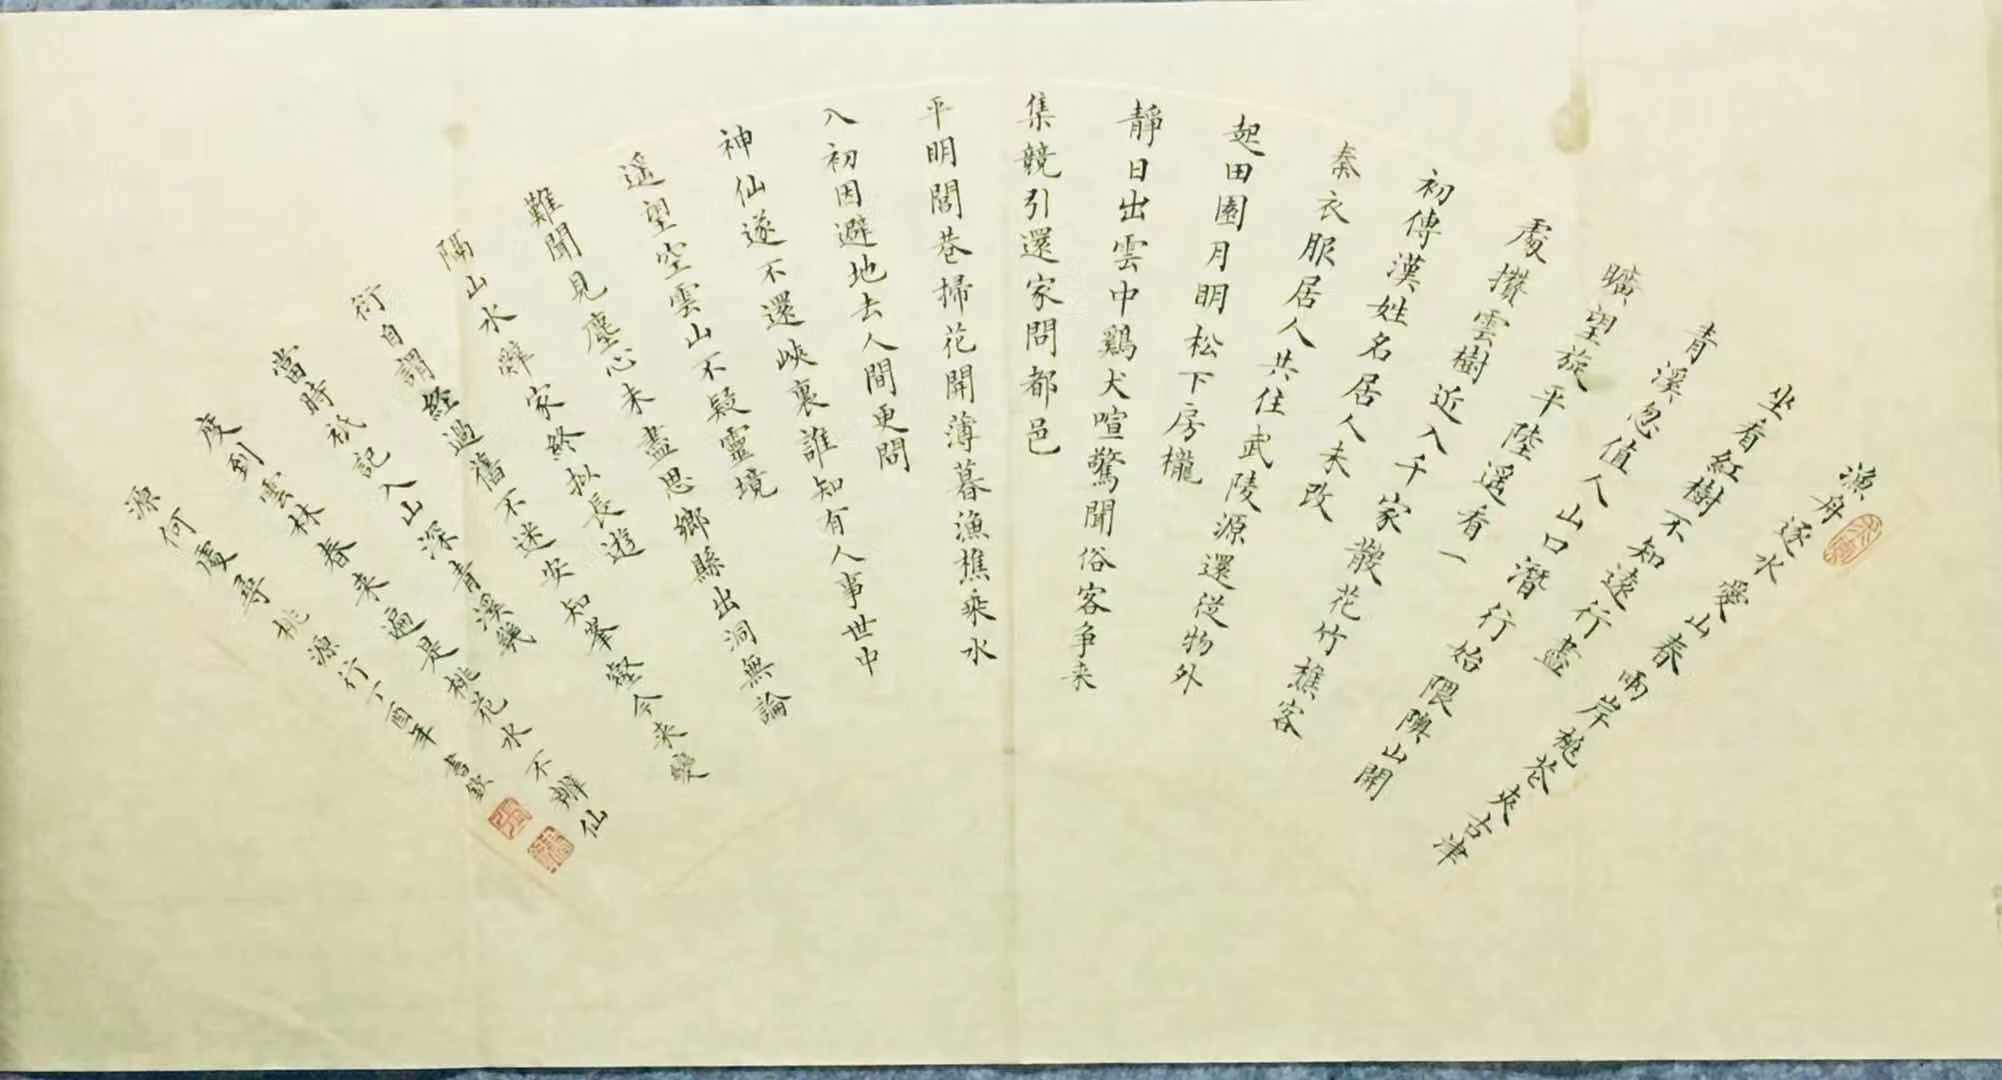 漁舟逐水愛山春兩岸桃花夾古津
坐看紅樹不知遠行盡
青溪忽值人山口潛行始隈隩山開
曠望旋平陸遥看一
處攢雲樹近入千家散花竹樵客
初傳漢姓名居人未改
秦衣服居人共住武陵源還從物外
起田園月明松下房櫳
靜日出雲中鷄犬喧驚聞俗客争来
集競引還家問都邑
平明閭巷掃花開薄暮漁樵乘水
入初因避地去人間更問
神仙遂不還峽裏誰知有人事世中
遥望空雲山不疑靈境
難聞見塵心未盡思鄉縣出洞無論
隔山水辭家終拟長遊
衍自謂經過舊不迷安知峯壑今来變
當時祇記入山深青溪幾
度到雲林春来遍是桃花水不辨仙
源何處尋 桃源行丁酉年書欽